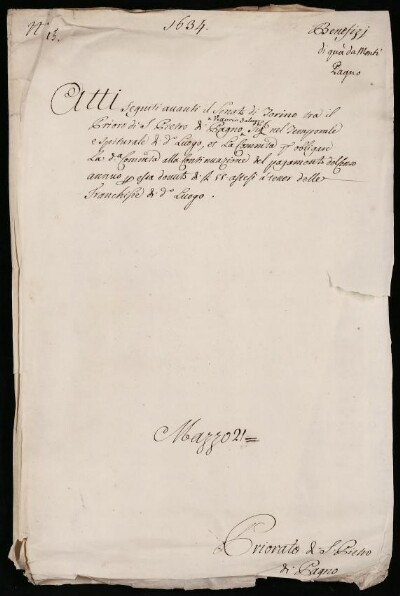 N.º 13.
1634.
Benefizj
di quà da Monti
Pagno
Atti seguiti avanti il Senato di Torino tra il
Priore di S. Pietro di Pagno nel Temporale
e Spirituale di d.º Luogo, et La Comunità p obligare
La d.ª Comunità alla Continuazione del pagamento
annuo p essa dovuto di 55 astesi a tenor delle
Franchisie di d.º Luogo.
Mazzo 21=
Priorato di S. Pietro
di Pagno